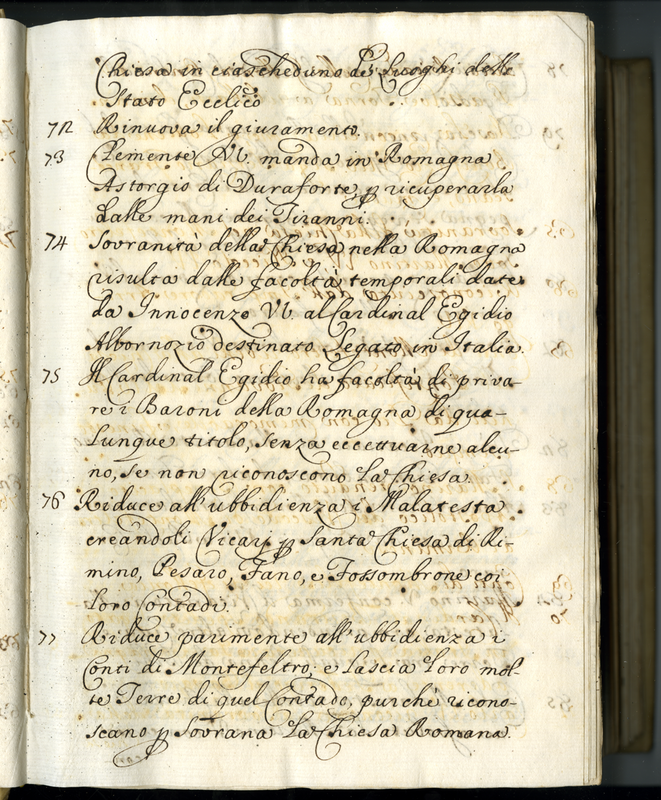 Chiesa in ciascheduno de' Luoghi dello
Stato Ecclico
72 Rinuova il giuramento.
73 Clemente VI. manda in Romagna
Astorgio di Duraforte p ricuperarla
dalle mani dei Tiranni.
74 Sovranita della Chiesa nella Romagna
risulta dalle facoltà temporali date
da Innocenzo VI. al Cardinal Egidio
Albornozio destinato Legato in Italia.
75 Il Cardinal Egidio ha facoltà di priva-
re i Baroni della Romagna di qua-
lunque titolo, senza eccettuarne alcu-
no, se non riconoscono la Chiesa.
76 Riduce all'ubbidienza i Malatesta
creandoli Vicarj p Santa Chiesa di Ri-
mino, Pesaro, Fano, e Fossombrone coi
loro Contadi.
77 Riduce parimente all'ubbidienza i
Conti di Montefeltro; e lascia loro mol-
te Terre di quel Contado, purchè ricono-
scano p Sovrana la Chiesa Romana.